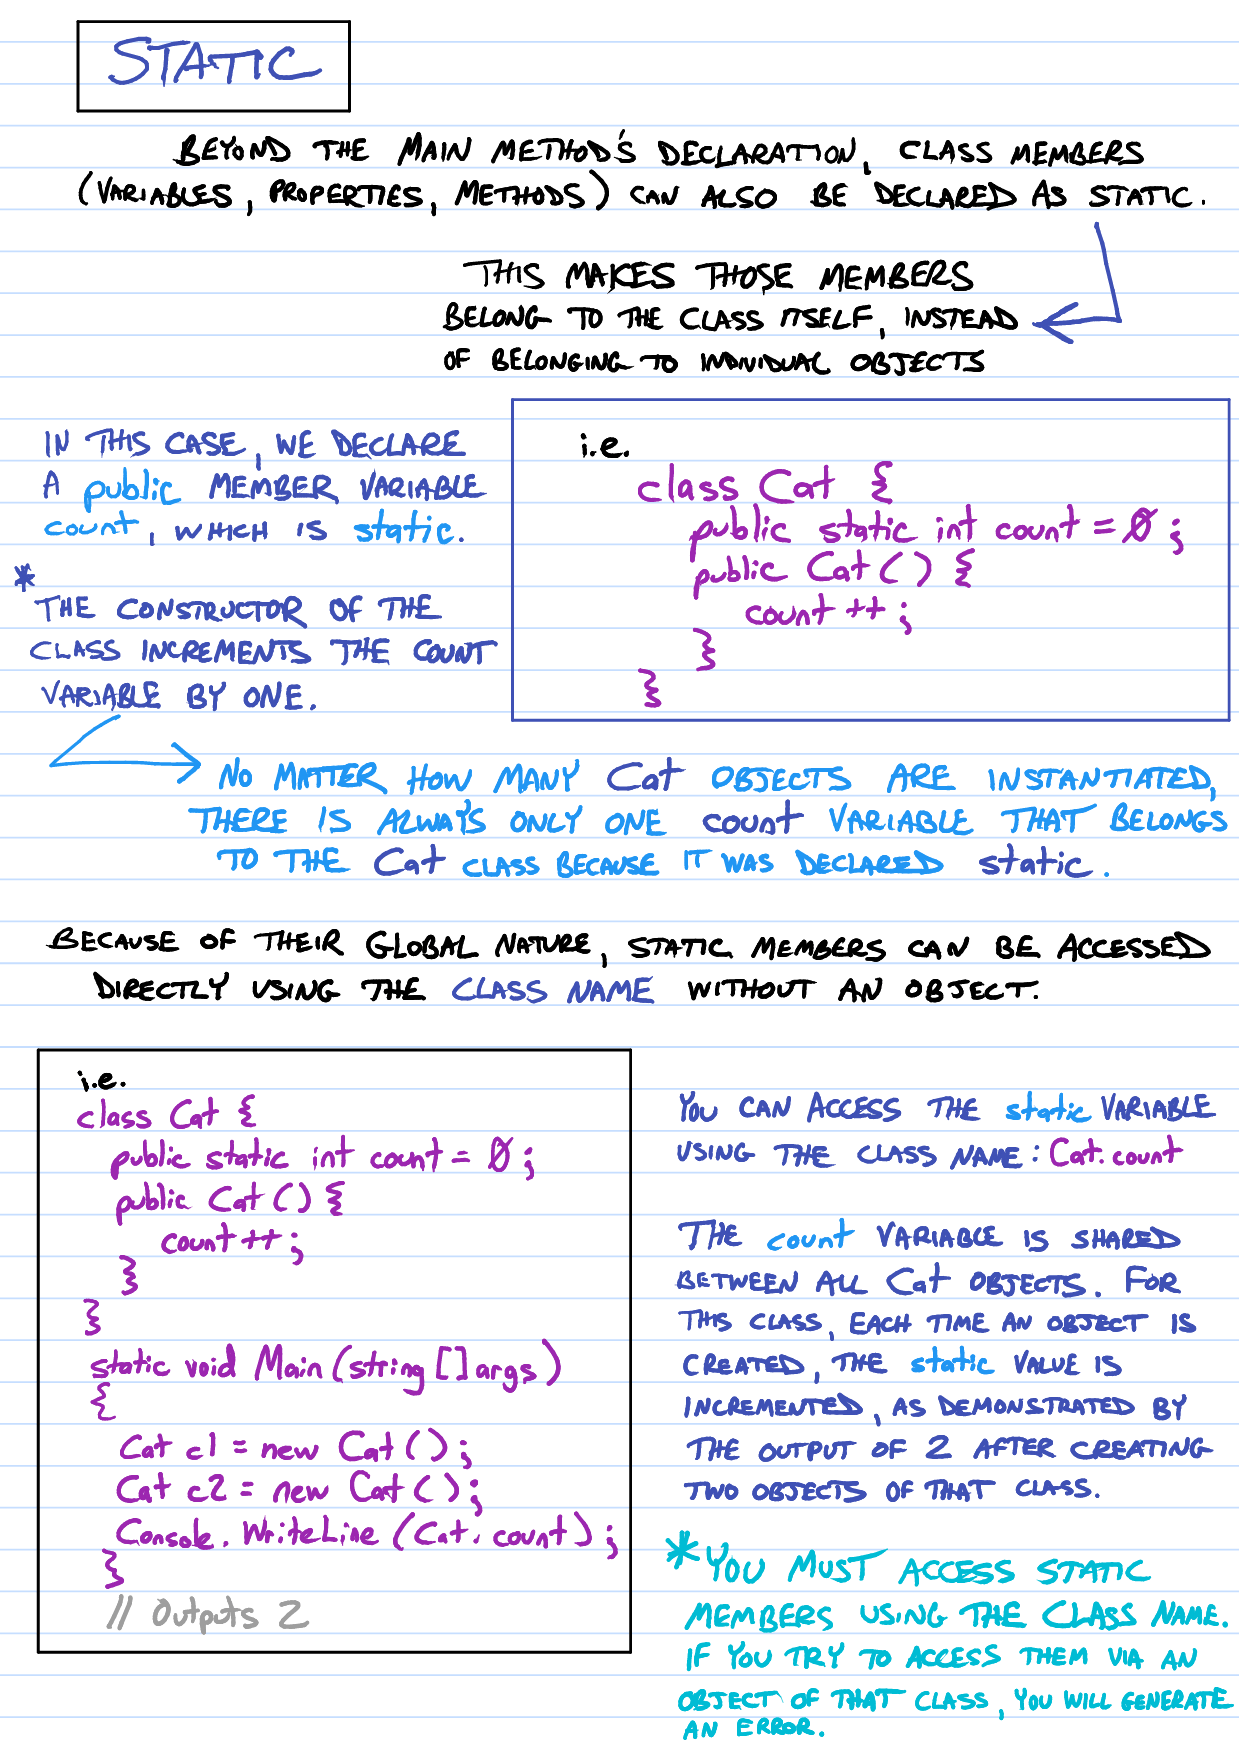 STATIC
BEYOND THE MAIN METHOD'S DECLARATION, CLASS MEMBERS
(VARIABLES, PROPERTIES, METHODS) CAN ALSO BE DECLARED AS STATIC.
THIS MAKES THOSE MEMBERS
BELONG TO THE CLASS ITSELF, INSTEAD
OF BELONGING TO INDIVIDUAL OBJECTS
IN THIS CASE, WE DECLARE
A public MEMBER VARIABLE
count, WHICH IS static.
* THE CONSTRUCTOR OF THE
CLASS INCREMENTS THE COUNT
VARIABLE BY ONE.
i.e.
class Cat {
public static int count = 0;
public Cat() {
count++;
}
}
NO MATTER HOW MANY Cat OBJECTS ARE INSTANTIATED,
THERE IS ALWAYS ONLY ONE count VARIABLE THAT BELONGS
TO THE Cat CLASS BECAUSE IT WAS DECLARED static.
BECAUSE OF THEIR GLOBAL NATURE, STATIC MEMBERS CAN BE ACCESSED
DIRECTLY USING THE CLASS NAME WITHOUT AN OBJECT.
i.e.
class Cat {
public static int count = 0;
public Cat() {
count++;
}
}
static void Main(string[] args)
{
Cat c1 = new Cat();
Cat c2 = new Cat();
Console.WriteLine(Cat.count);
}
// Outputs 2
YOU CAN ACCESS THE static VARIABLE
USING THE CLASS NAME: Cat.count
THE count VARIABLE IS SHARED
BETWEEN ALL Cat OBJECTS. FOR
THIS CLASS, EACH TIME AN OBJECT IS
CREATED, THE static VALUE IS
INCREMENTED, AS DEMONSTRATED BY
THE OUTPUT OF 2 AFTER CREATING
TWO OBJECTS OF THAT CLASS.
* YOU MUST ACCESS STATIC
MEMBERS USING THE CLASS NAME.
IF YOU TRY TO ACCESS THEM VIA AN
OBJECT OF THAT CLASS, YOU WILL GENERATE
AN ERROR.